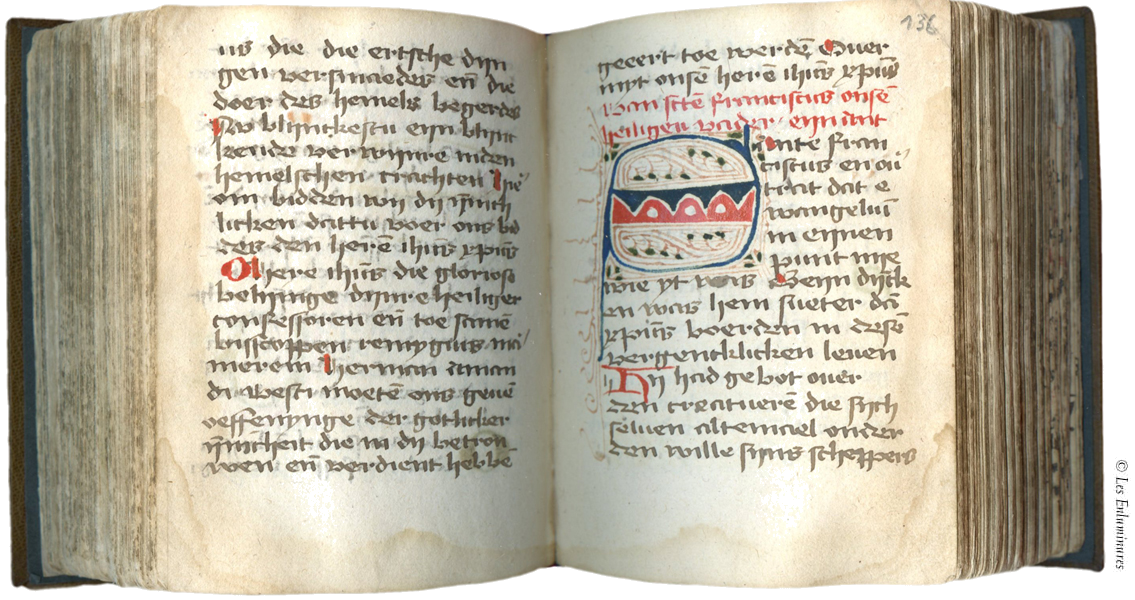 us die die ertsche dyn
gen versmaedes en̄ die
doer des hemels begerdes
Nv blijnckestu eyn blijnc
kende verwijnre in den
hemelschen crachten hie
om bidden wij dij ynnich
licken dattu voer ons bid
des den herē ihūs xpūs
O here ihūs die gloriose
beijnge dijnre heiliger
confessoren en̄ toe samē
busscoppen remygius
merem herman aman
di vesti moetē ons geuē
veffenynge der gotlicker
ynnicheit die in dij betrou
wen en̄ verdient hebbē
136
geeert toe werdē Ouer
myt onsē herē ihūs xpūs
Van sctē franciscus onsē
heiligen vader eyn ant
Sante fran
ciscus en
trat dat e
wangeliū
in eynen
punt nie
wie yt was Geyn dijck
en was hem sueter dā
xpūs boerden in desē
vergencklicken leuen
Hij had gebot ouer
den creatuerē die sych
seluen altemael onder
den wille syns scheppers
© Les Enluminures